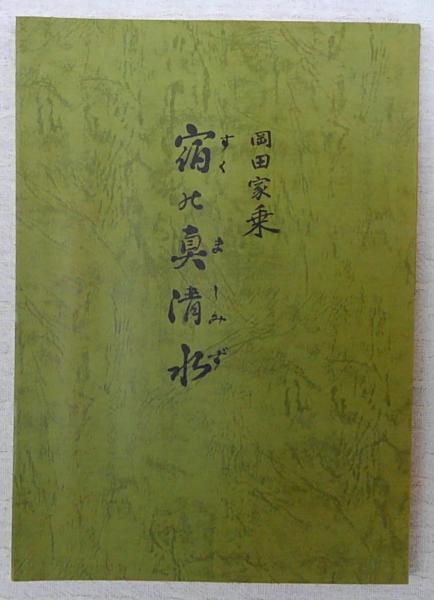 岡田家乗
宿の真清水
すくましみず